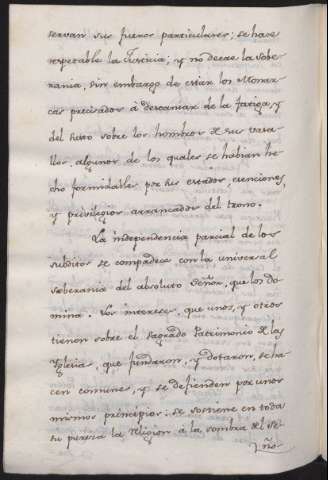 servan sus fueros particulares; se hace
respetable la Justicia; y no decae la sobe-
rania, sin embargo de estar los Monar-
cas precisados à descansar de la fatiga, y
del peso sobre los hombros de sus vasa-
llos, algunos de los quales se habian he-
cho formidables por sus estados, esenciones,
y privilegios arrancados del trono.
La independencia parcial de los
subditos se compadece con la universal
soberania del absoluto Señor, que los do-
mina. Los intereses, que unos, y otros
tienen sobre el sagrado Patrimonio de las
Yglesias, que fundaron, y dotaron, se ha-
cen comunes, y se defienden por unos
mismos principios: se sostiene en toda
su pureza la religion á la sombra del Se-
ñor